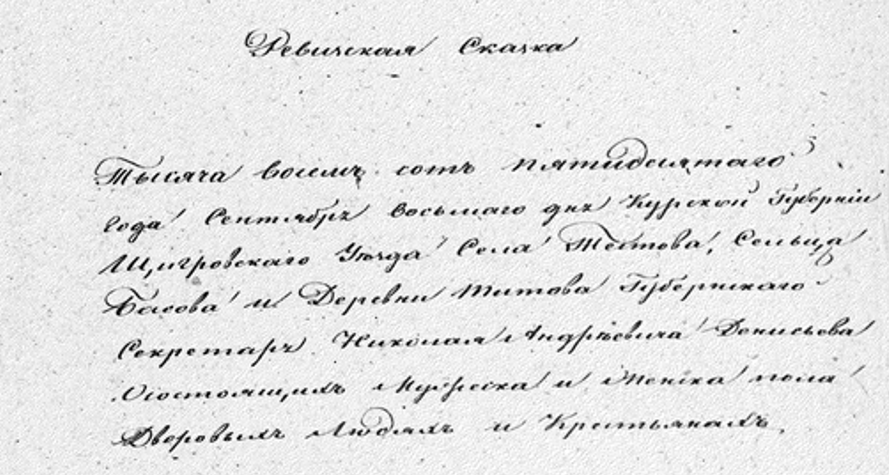 Ревижская Сказка
Тысяча восемь сотъ пятидесятаго
года Сентября восьмаго дня Курской Губерніи
Щигровскаго Уѣзда Села Тестова, Сельца
Басова и Деревни Титова Губернскаго
Секретаря Николая Андрѣевича Денисьева
О состоящихъ Мужеска и Женска пола
Дворовыхъ Людяхъ и Крестьянахъ.